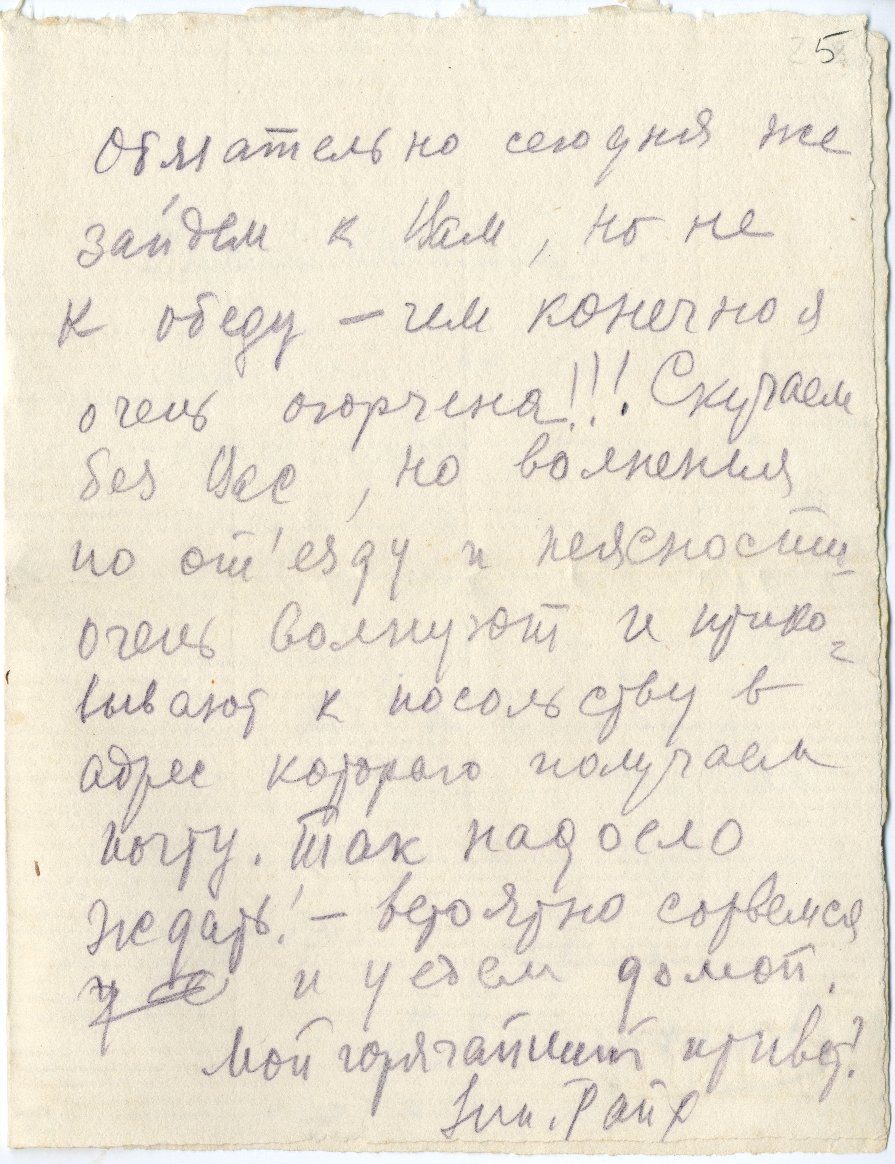 5
Обязательно сегодня же
зайдем к Вам, но не
к обеду — чем конечно я
очень огорчена!!! Скучаем
без Вас, но волнения
по от'езду и неясности
очень волнуют и прико-
вывают к посольству в
адрес которого получаем
почту. Так надоело
ждать! — вероятно сорвемся
и уедем домой.
Мой горячайший привет!
Зин. Райх